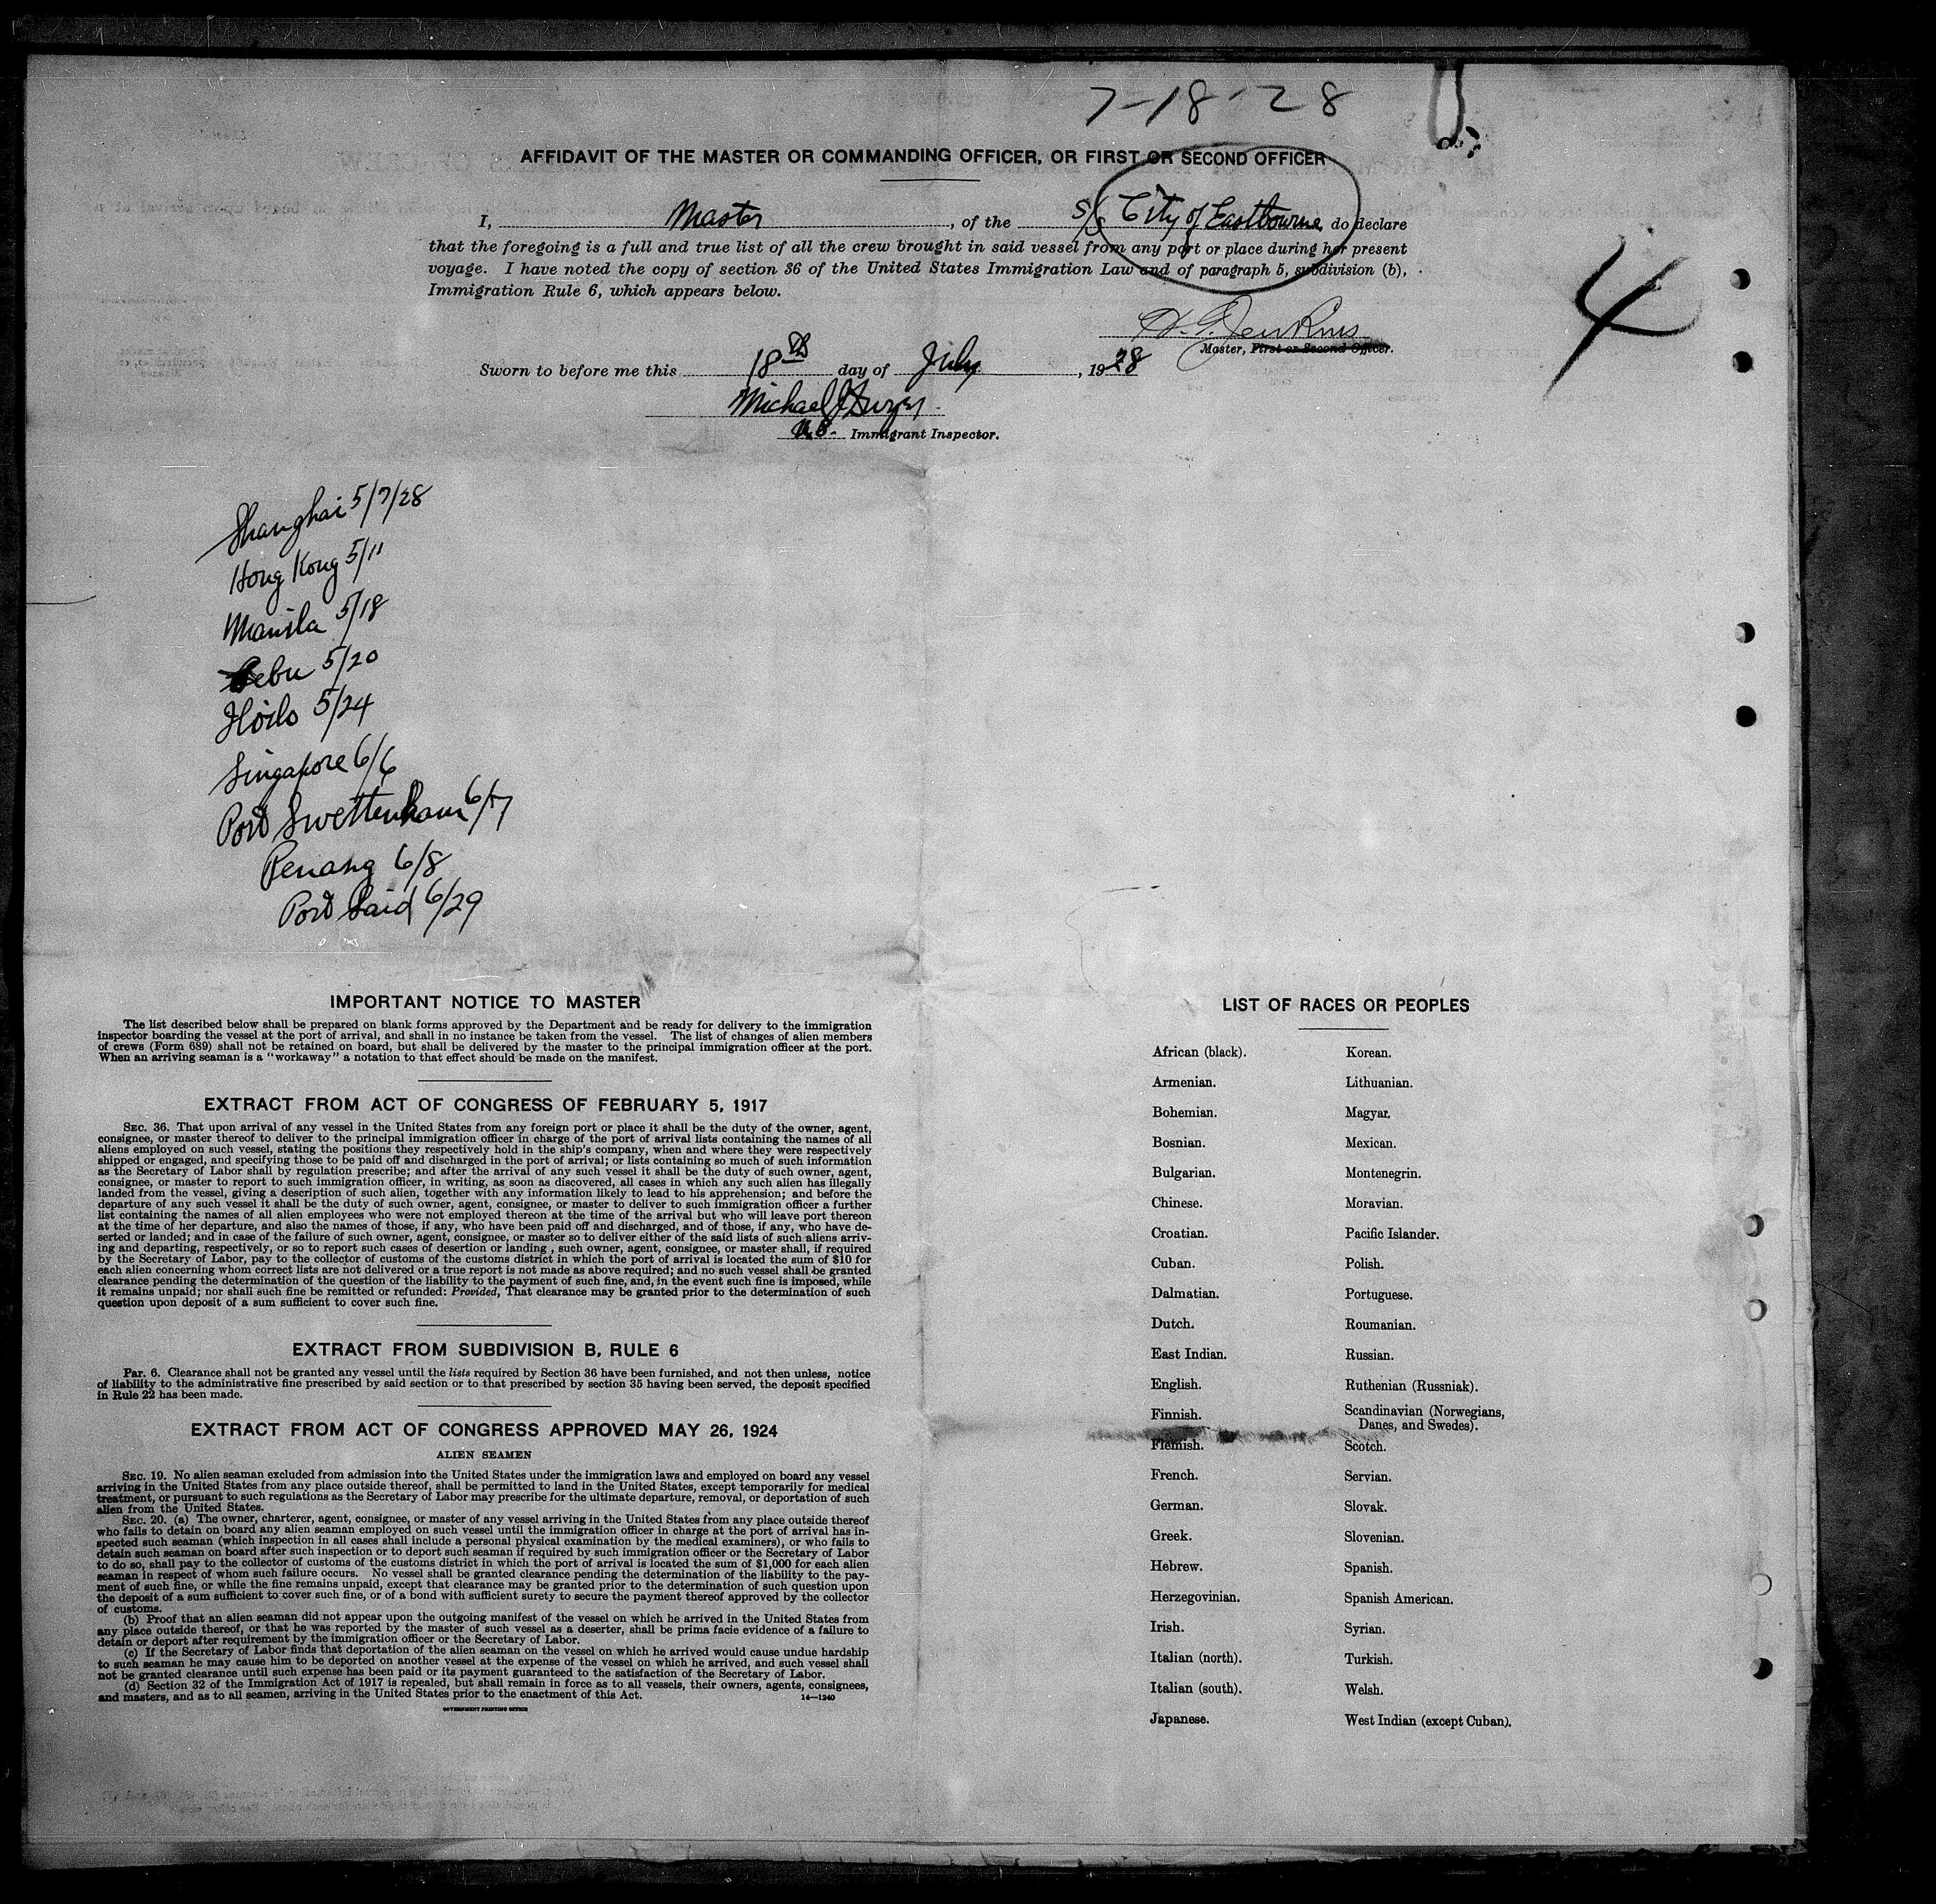 7-18-28
AFFIDAVIT OF THE MASTER OR COMMANDING OFFICER, OR FIRST OR SECOND OFFICER
I, Master, of the S/S City of Eastbourne, do declare
that the foregoing is a full and true list of all the crew brought in said vessel from any port or place during her present
voyage. I have noted the copy of section 36 of the United States Immigration Law and of paragraph 5, subdivision (b),
Immigration Rule 6, which appears below.
4
H. G. Jenkins
Master, First or Second Officer.
Sworn to before me this 18th day of July, 1928
Michael J.
U.S. Immigrant Inspector.
Shanghai 5/7/28
Hong Kong 5/11
Manila 5/18
Cebu 5/20
Iloilo 5/24
Singapore 6/6
Port Swettenham 6/7
Penang 6/8
Port Said 6/29
IMPORTANT NOTICE TO MASTER
The list described below shall be prepared on blank forms approved by the Department and be ready for delivery to the immigration
inspector boarding the vessel at the port of arrival, and shall in no instance be taken from the vessel. The list of changes of alien members
of crews (Form 689) shall not be retained on board, but shall be delivered by the master to the principal immigration officer at the port.
When an arriving seaman is a "workaway" a notation to that effect should be made on the manifest.
EXTRACT FROM ACT OF CONGRESS OF FEBRUARY 5, 1917
SEC. 36. That upon arrival of any vessel in the United States from any foreign port or place it shall be the duty of the owner, agent,
consignee, or master thereof to deliver to the principal immigration officer in charge of the port of arrival lists containing the names of all
aliens employed on such vessel, stating the positions they respectively hold in the ship's company, when and where they were respectively
shipped or engaged, and specifying those to be paid off and discharged in the port of arrival; or lists containing so much of such information
as the Secretary of Labor shall by regulation prescribe; and after the arrival of any such vessel it shall be the duty of such owner, agent,
consignee, or master to report to such immigration officer, in writing, as soon as discovered, all cases in which any such alien has illegally
landed from the vessel, giving a description of such alien, together with any information likely to lead to his apprehension; and before the
departure of any such vessel it shall be the duty of such owner, agent, consignee, or master to deliver to such immigration officer a further
list containing the names of all alien employees who were not employed thereon at the time of the arrival but who will leave port thereon
at the time of her departure, and also the names of those, if any, who have been paid off and discharged, and of those, if any, who have de-
serted or landed; and in case of the failure of such owner, agent, consignee, or master so to deliver either of the said lists of such aliens arriv-
ing and departing, respectively, or so to report such cases of desertion or landing , such owner, agent, consignee, or master shall, if required
by the Secretary of Labor, pay to the collector of customs of the customs district in which the port of arrival is located the sum of $10 for
each alien concerning whom correct lists are not delivered or a true report is not made as above required; and no such vessel shall be granted
clearance pending the determination of the question of the liability to the payment of such fine, and, in the event such fine is imposed, while
it remains unpaid; nor shall such fine be remitted or refunded: Provided, That clearance may be granted prior to the determination of such
question upon deposit of a sum sufficient to cover such fine.
EXTRACT FROM SUBDIVISION B, RULE 6
Par. 6. Clearance shall not be granted any vessel until the lists required by Section 36 have been furnished, and not then unless, notice
of liability to the administrative fine prescribed by said section or to that prescribed by section 35 having been served, the deposit specified
in Rule 22 has been made.
EXTRACT FROM ACT OF CONGRESS APPROVED MAY 26, 1924
ALIEN SEAMEN
SEC. 19. No alien seaman excluded from admission into the United States under the immigration laws and employed on board any vessel
arriving in the United States from any place outside thereof, shall be permitted to land in the United States, except temporarily for medical
treatment, or pursuant to such regulations as the Secretary of Labor may prescribe for the ultimate departure, removal, or deportation of such
alien from the United States.
SEC. 20. (a) The owner, charterer, agent, consignee, or master of any vessel arriving in the United States from any place outside thereof
who fails to detain on board any alien seaman employed on such vessel until the immigration officer in charge at the port of arrival has in-
spected such seaman (which inspection in all cases shall include a personal physical examination by the medical examiners), or who fails to
detain such seaman on board after such inspection or to deport such seaman if required by such immigration officer or the Secretary of Labor
to do so, shall pay to the collector of customs of the customs district in which the port of arrival is located the sum of $1,000 for each alien
seaman in respect of whom such failure occurs. No vessel shall be granted clearance pending the determination of the liability to the pay-
ment of such fine, or while the fine remains unpaid, except that clearance may be granted prior to the determination of such question upon
the deposit of a sum sufficient to cover such fine, or of a bond with sufficient surety to secure the payment thereof approved by the collector
of customs.
(b) Proof that an alien seaman did not appear upon the outgoing manifest of the vessel on which he arrived in the United States from
any place outside thereof, or that he was reported by the master of such vessel as a deserter, shall be prima facie evidence of a failure to
detain or deport after requirement by the immigration officer or the Secretary of Labor.
(c) If the Secretary of Labor finds that deportation of the alien seaman on the vessel on which he arrived would cause undue hardship
to such seaman he may cause him to be deported on another vessel at the expense of the vessel on which he arrived, and such vessel shall
not be granted clearance until such expense has been paid or its payment guaranteed to the satisfaction of the Secretary of Labor.
(d) Section 32 of the Immigration Act of 1917 is repealed, but shall remain in force as to all vessels, their owners, agents, consignees,
and masters, and as to all seamen, arriving in the United States prior to the enactment of this Act.
14—1240
GOVERNMENT PRINTING OFFICE
LIST OF RACES OR PEOPLES
African (black).
Armenian.
Bohemian.
Bosnian.
Bulgarian.
Chinese.
Croatian.
Cuban.
Dalmatian.
Dutch.
East Indian.
English.
Finnish.
Flemish.
French.
German.
Greek.
Hebrew.
Herzegovinian.
Irish.
Italian (north).
Italian (south).
Japanese.
Korean.
Lithuanian.
Magyar.
Mexican.
Montenegrin.
Moravian.
Pacific Islander.
Polish.
Portuguese.
Roumanian.
Russian.
Ruthenian (Russniak).
Scandinavian (Norwegians,
Danes, and Swedes).
Scotch.
Servian.
Slovak.
Slovenian.
Spanish.
Spanish American.
Syrian.
Turkish.
Welsh.
West Indian (except Cuban).